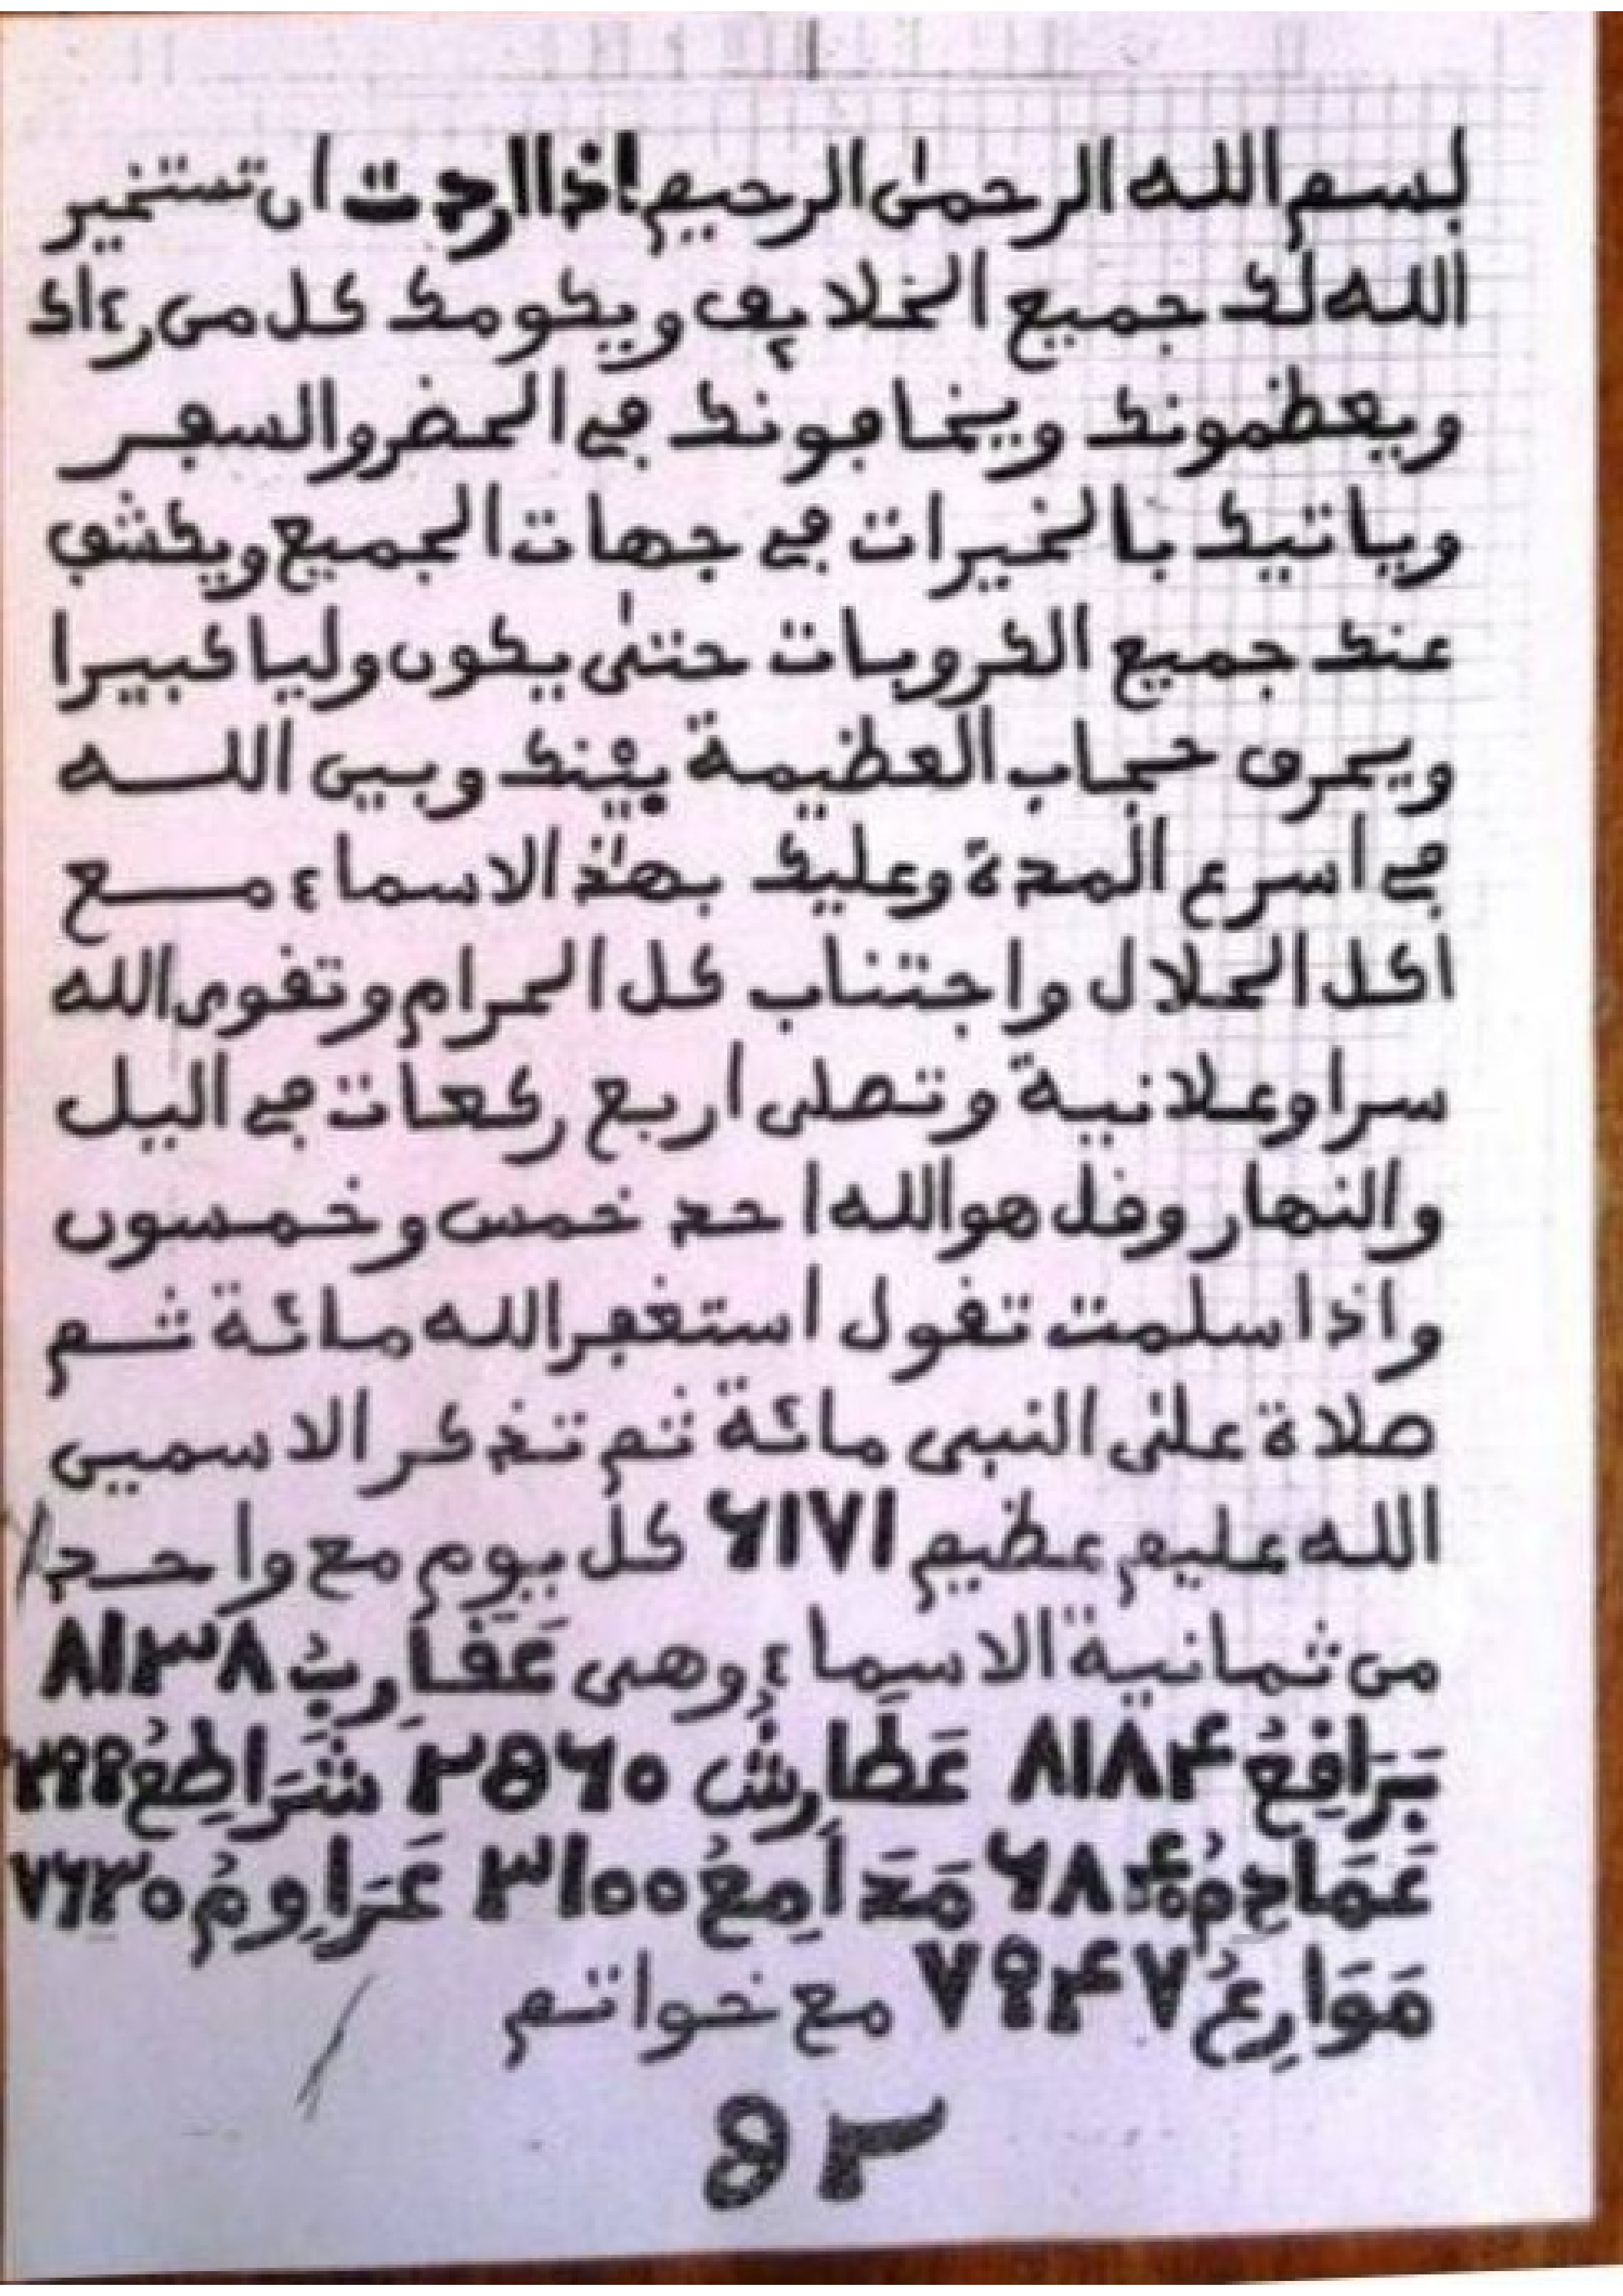 بسم الله الرحمن الرحيم اذا اردت ان تستخير
الله لك جميع الخلايق ويكومك كل من رءاك
ويعظمونك ويخافونك في الحضر والسفر
وياتيك بالخيرات في جهات الجميع ويكشف
عنك جميع الكروبات حتى يكون وليا كبيرا
ويحرق حجاب العظيمة بينك وبين اللـــه
في اسرع المدة وعليك بهذ الاسماء مـــع
اكل الحلال واجتناب كل الحرام وتقوى الله
سرا وعلانية وتصلى اربع ركعات في اليل
والنهار وقل هو الله احد خمس وخمسون
واذا سلمت تقول استغفر الله مائة ثـم
صلاة على النبى مائة ثم تذكر الاسمين
الله عليم عظيم ٦١٧١ كل يوم مع واحد
من ثمانية الاسماء وهى عَقَارِبُ ٨١٣٨
بَرَافِعُ ٨١٨۴ عَطَارِشُ ٣٥٦٠ شَرَاطِعُ
عَمَاحِمُ ٦٨۴ مَدَامِعُ ٣١٠٠ عَرَاوِمُ ٧٦٣٠
مَوَارِعُ ٧٩۴٧ مع خواتم
٥٢